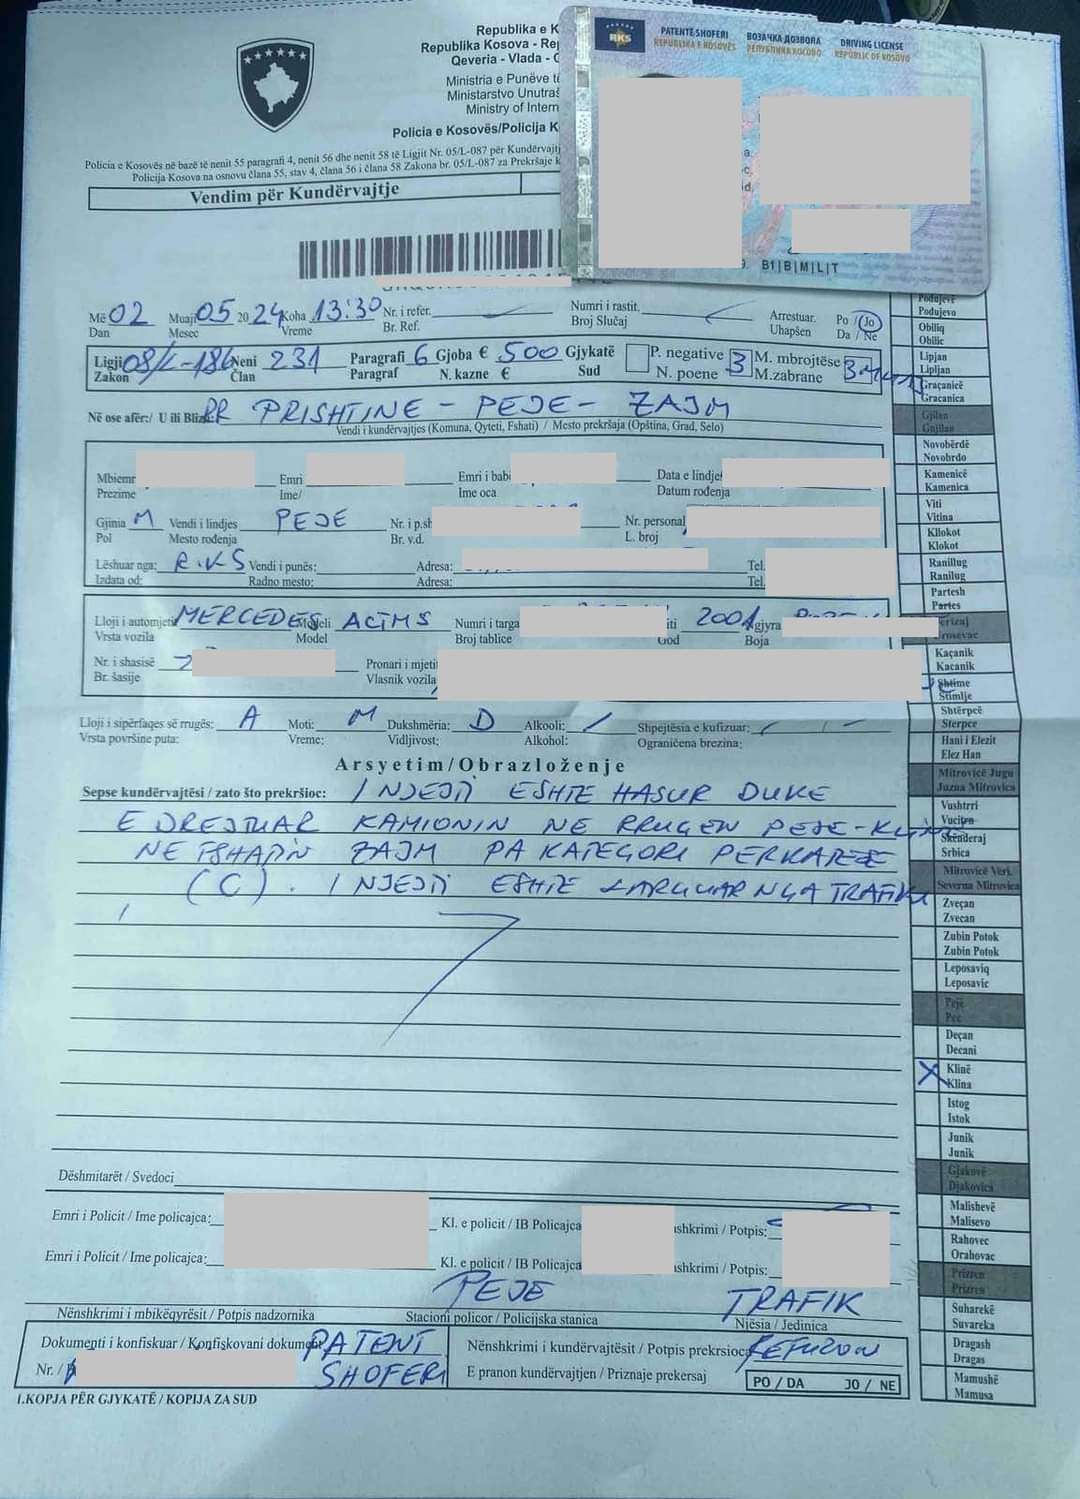 Republika e K
Republika Kosova - Rep
Qeveria - Vlada - G
Ministria e Punëve të
Ministarstvo Unutraš
Ministry of Intern
Policia e Kosovës/Policija K
RKS
PATENTË SHOFERI ВОЗАЧКА ДОЗВОЛА DRIVING LICENSE
REPUBLIKA E KOSOVËS РЕПУБЛИКА КОСОВО REPUBLIC OF KOSOVO
9. B1|B|M|L|T
Policia e Kosovës në bazë të nenit 55 paragrafi 4, nenit 56 dhe nenit 58 të Ligjit Nr. 05/L-087 për Kundërvajtj
Policija Kosova na osnovu člana 55, stav 4, člana 56 i člana 58 Zakona br. 05/L-087 za Prekršaje k
Vendim për Kundërvajtje
Më 02 Muaji 05 2024 Koha 13:30 Nr. i refer. Numri i rastit. Arrestuar. Po / Jo
Dan Mesec Vreme Br. Ref. Broj Slučaj Uhapšen Da / Ne
Ligji 08/L-186 Neni 231 Paragrafi 6 Gjoba € 500 Gjykatë P. negative 3 M. mbrojtëse 3
Zakon Član Paragraf N. kazne € Sud N. poene M.zabrane
Në ose afër:/ U ili Blizu: RR PRISHTINE - PEJE - ZAJM
Vendi i kundërvajtjes (Komuna, Qyteti, Fshati) / Mesto prekršaja (Opština, Grad, Selo)
Mbiemr Emri Emri i babi Data e lindje
Prezime Ime/ Ime oca Datum rođenja
Gjinia M Vendi i lindjes PEJE Nr. i p.sh Nr. personal
Pol Mesto rođenja Br. v.d. L. broj
Lëshuar nga: R.KS Vendi i punës: Adresa: Tel.
Izdata od: Radno mesto: Adresa: Tel.
Lloji i automjetit MERCEDES Modeli ACTMS Numri i targa iti 2001 Ngjyra
Vrsta vozila Model Broj tablice God Boja
Nr. i shasisë Pronari i mjeti
Br. šasije Vlasnik vozila
Lloji i sipërfaqes së rrugës: A Moti: M Dukshmëria: D Alkooli: / Shpejtësia e kufizuar:
Vrsta površine puta: Vreme: Vidljivost: Alkohol: Ograničena brezina:
Arsyetim/Obrazloženje
Sepse kundërvajtësi / zato što prekršioc: I NJEJTI ESHTE HASUR DUKE
E DREJTUAR KAMIONIN NE RRUGEN PEJE-KLINE
NE FSHATIN ZAJM PA KATEGORI PERKATESE
(C). I NJEJTI ESHTE LARGUAR NGA TRAFIKU
Dëshmitarët / Svedoci
Emri i Policit / Ime policajca: Kl. e policit / IB Policajca nshkrimi / Potpis:
Emri i Policit / Ime policajca: Kl. e policit / IB Policajca nshkrimi / Potpis:
PEJE TRAFIK
Nënshkrimi i mbikëqyrësit / Potpis nadzornika Stacioni policor / Policijska stanica Njësia / Jedinica
Dokumenti i konfiskuar / Konfiskovani dokument PATENT Nënshkrimi i kundërvajtësit / Potpis prekrsioca REFUZON
Nr. / SHOFERI E pranon kundërvajtjen / Priznaje prekersaj PO / DA JO / NE
1.KOPJA PËR GJYKATË / KOPIJA ZA SUD
Podujevë
Podujevo
Obiliq
Obilic
Lipjan
Lipljan
Graçanicë
Gracanica
Gjilan
Gnjilan
Novobërdë
Novobrdo
Kamenicë
Kamenica
Viti
Vitina
Kllokot
Klokot
Ranillug
Ranilug
Partesh
Partes
Ferizaj
Urosevac
Kaçanik
Kacanik
Shtime
Stimlje
Shtërpcë
Sterpce
Hani i Elezit
Elez Han
Mitrovicë Jugu
Juzna Mitrovica
Vushtrri
Vucitrn
Skënderaj
Srbica
Mitrovicë Veri.
Severna Mitrovica
Zveçan
Zvecan
Zubin Potok
Zubin Potok
Leposaviq
Leposavic
Pejë
Pec
Deçan
Decani
X Klinë
Klina
Istog
Istok
Junik
Junik
Gjakovë
Djakovica
Malishevë
Malisevo
Rahovec
Orahovac
Prizren
Prizren
Suharekë
Suvareka
Dragash
Dragas
Mamushë
Mamusa